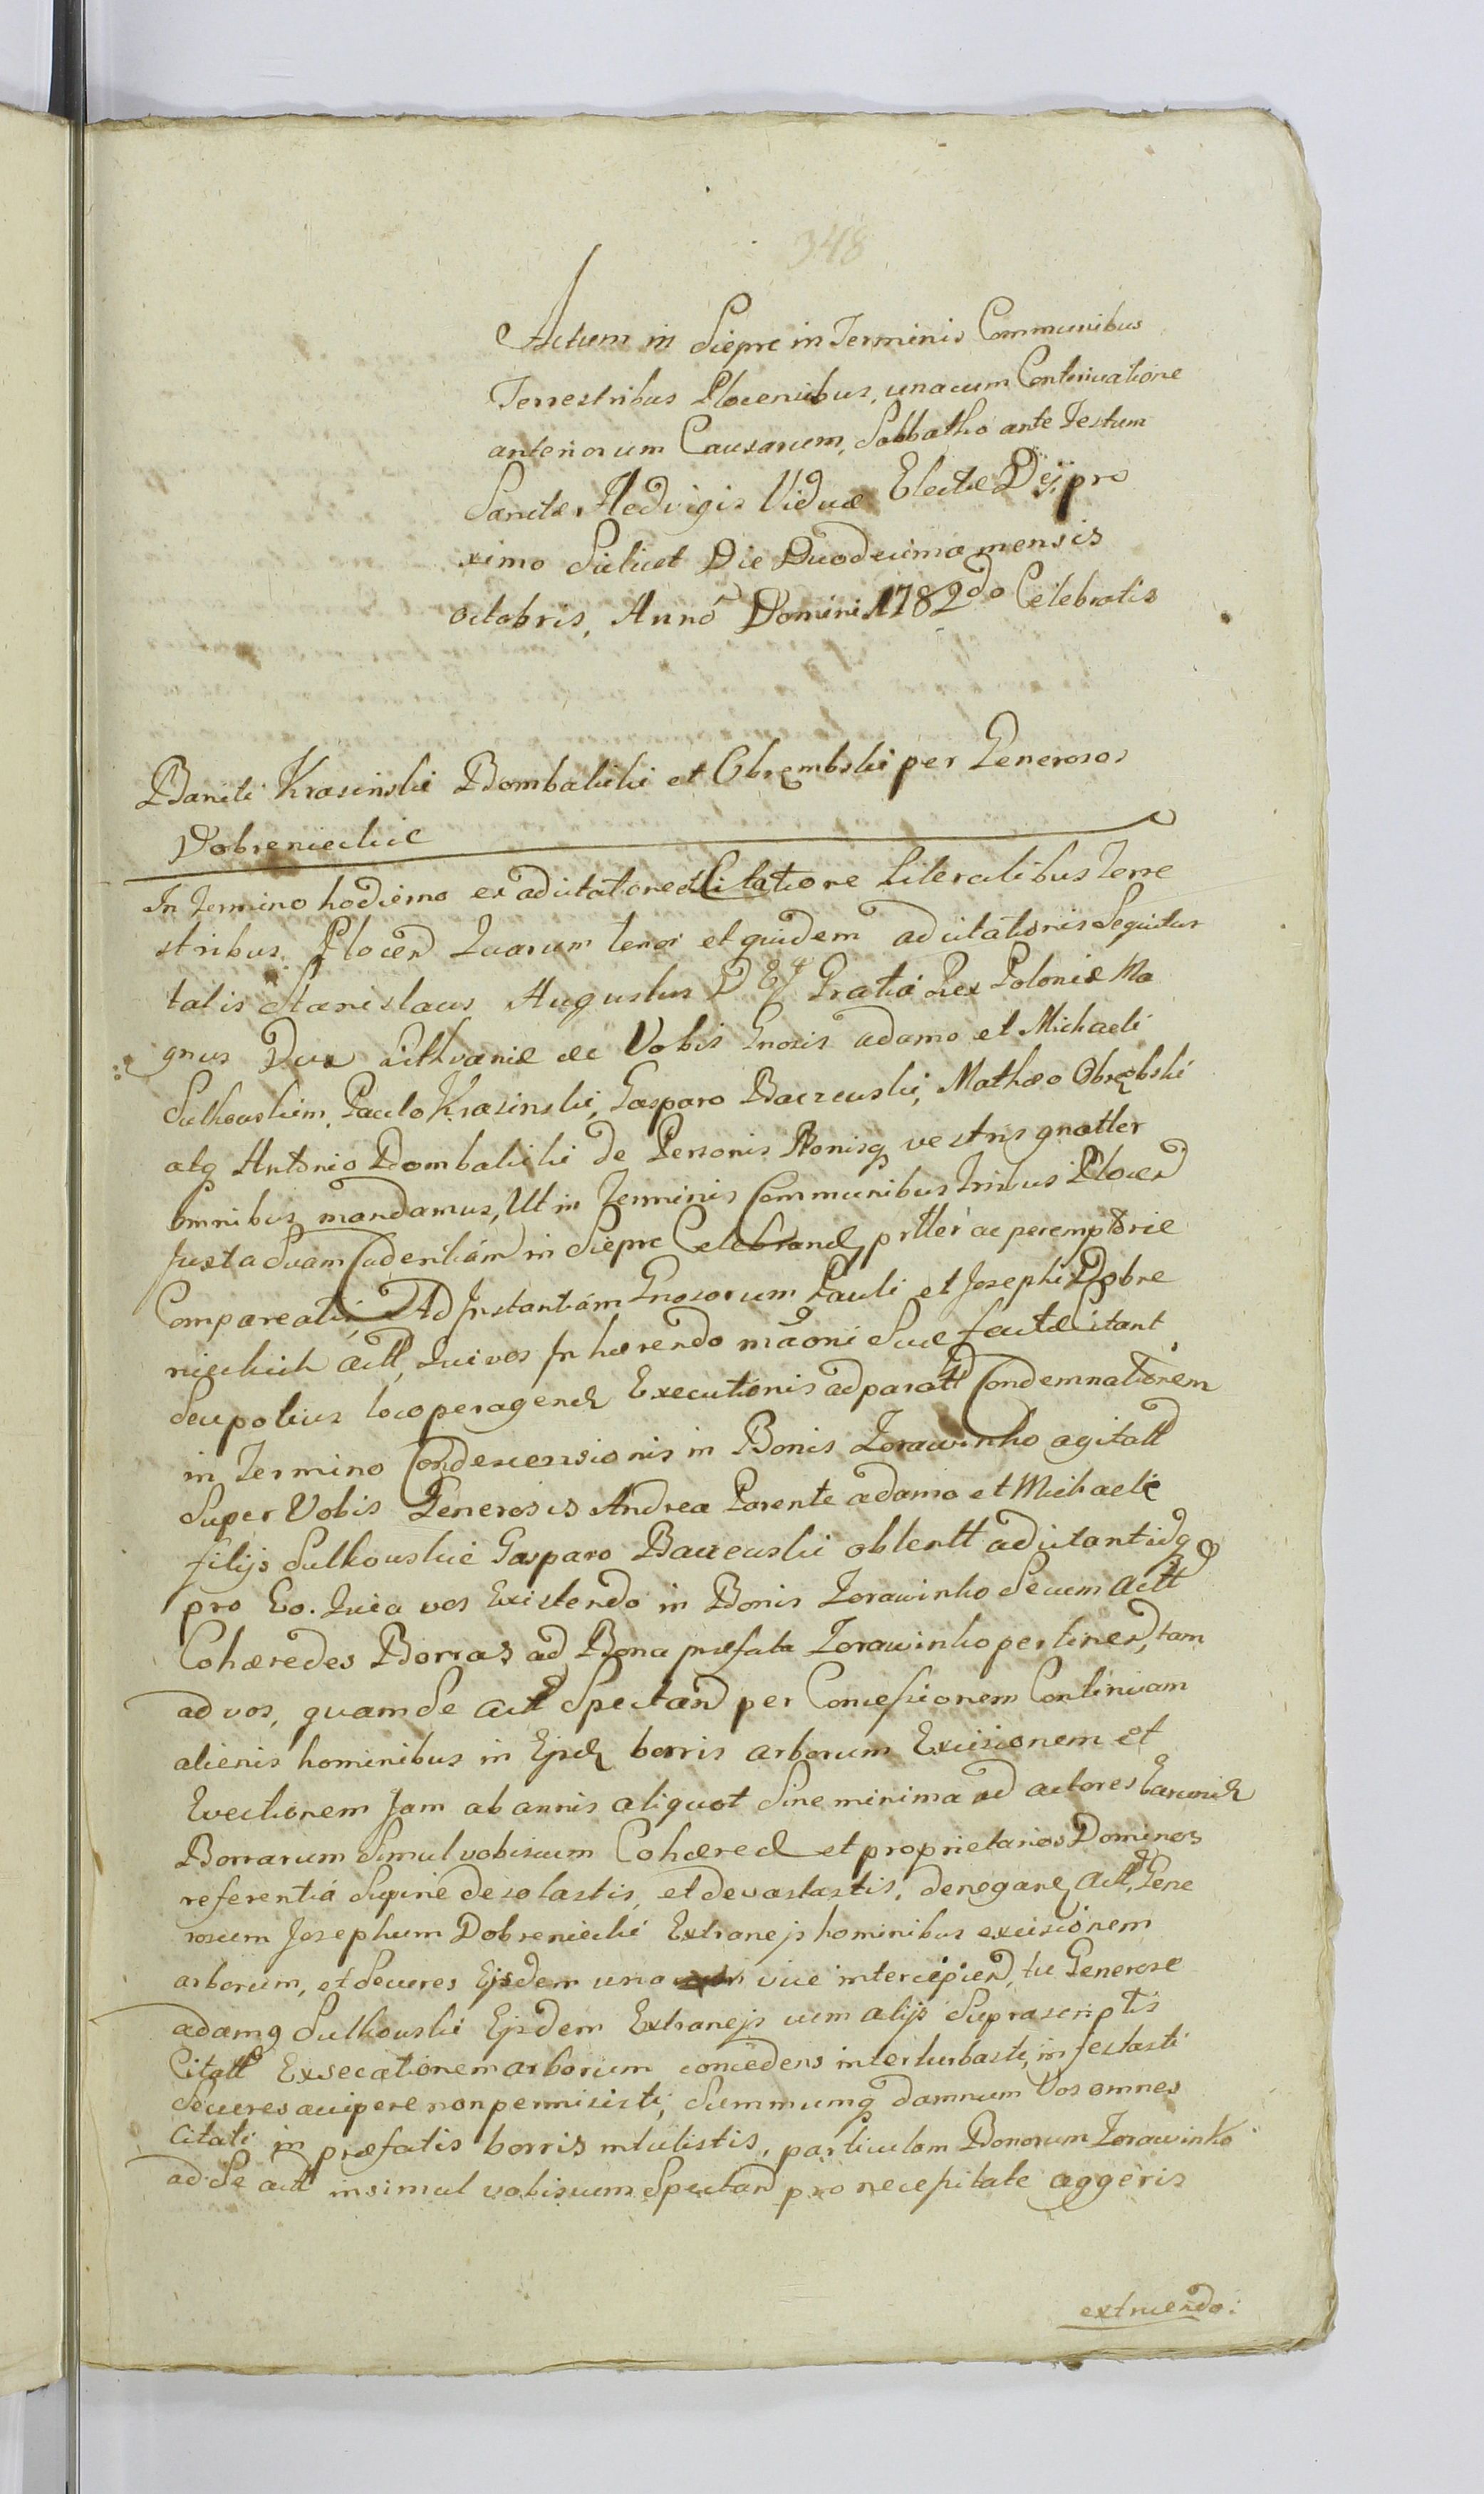 348
Actum in Siepre in Terminis Communibus
Terrestribus Plocensibus, unacum Continuatione
anteriorum Causarum, Sabbatho ante Festum
Sanctæ Hedvigis Viduæ Electæ Dei, pro
ximo Scilicet Die Duodecima mensis
octobris, Anno Domini 1782do Celebratis
Baniti Krasinski Bombalicki et Obrembski per Generosos
Dobrenieckie
In Termino hodierno ex adcitatione et Citatione Literalibus Terre
stribus Plocen Quarum tenor et quidem adcitationis Sequitur
talis Stanislaus Augustus D EJ Gratia Rex Poloniæ Ma
gnus Dux Lithvaniæ &c Vobis Gnosis adamo et Michaeli
Sulkowskim, Paulo Krasinski, Gasparo Baczewski, Mathæo Obrębski
atq Antonio Bombalicki de Personis Bonisq vestris gnatter
omnibus mandamus, Ut in Terminis Communibus Trribus Plocen
Juxta Suam Cadentiam in Siepre Celebrand prtter ac peremptorie
Compareatis, Ad Instantiam Gnosorum Pauli et Josephi Dobre
nieckich actt, Qui vos Inhærendo maoni Suæ factæ Citant
Seu potius loco peragend Executionis ad paratt Condemnationem
in Termino Condescensionis in Bonis Zorawinko agitatt
Super Vobis Generosis Andrea Parente adamo et Michaele
filijs Sulkowskie Gasparo Baczewski obtentt adcitant idq
pro Eo. Quia vos Existendo in Bonis Zorawinko Secum actt
Cohæredes Borras ad Bona præfata Zorawinko pertinen, tam
ad vos, quam Se actt Spectan per Concessionem Continuam
alienis hominibus in Ejsd borris arborum Excisionem et
Evectionem Jam ab annis aliquot Sine minima ad actores Earund
Borrarum Simul vobiscum Cohæred et proprietarios Dominos
referentia Supine desolastis, et devastastis, denegand actt, Gene
rosum Josephum Dobreniecki Extranejs hominibus excisionem
arborum, et Secures Ejsdem una vice intercipien, tu Generose
adamq Sulkowski Ejsdem Extranejs cum alijs Suprascriptis
Citatt Exsecationem arborum concedens interturbasti, infestasti
Secures accipere non permisisti, Summumq damnum Vos omnes
Citati in præfatis borris intulistis, particulam Bonorum Zorawinko
ad Se actt insimul vobiscum Spectan pro necessitate aggeris
extruendo: